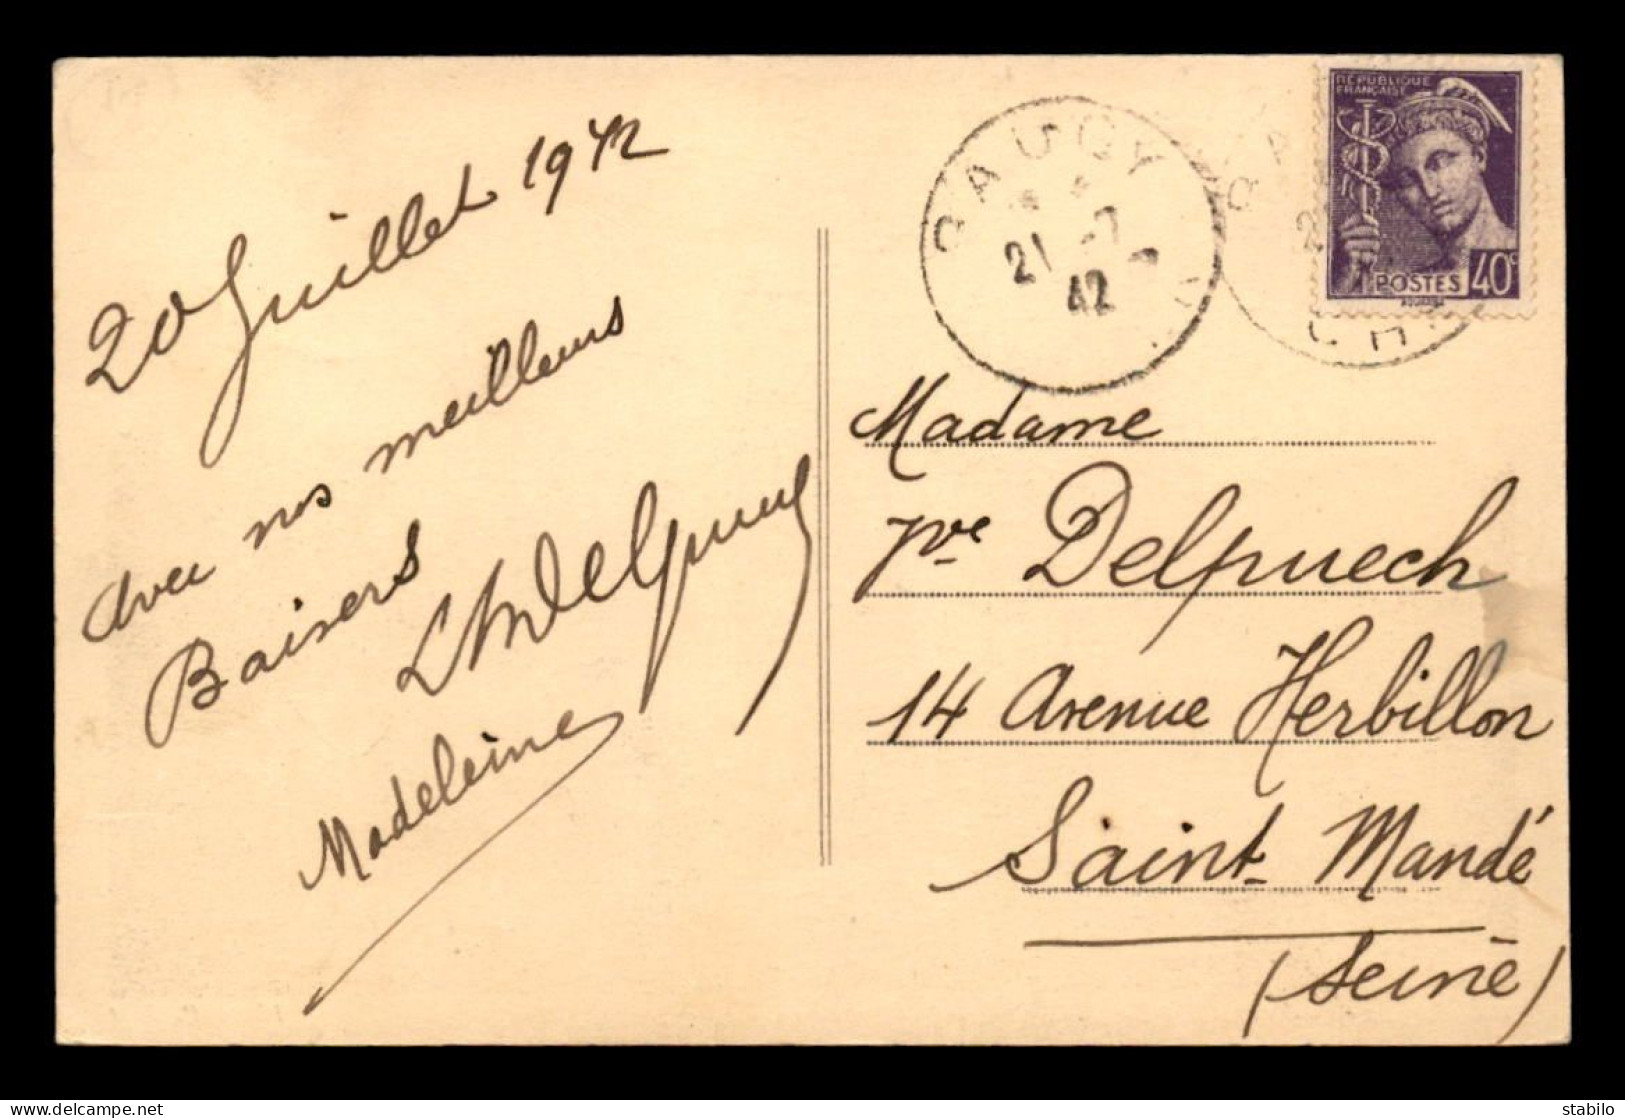 20 Juillet 1942
Avec nos meilleurs
Baisers
Delpuech
Madeleine
BAUGY
21 -7
42
RÉPUBLIQUE
FRANÇAISE
POSTES 40c
CH
Madame
Vve Delpuech
14 Avenue Herbillon
Saint-Mandé
(Seine)
stabilo